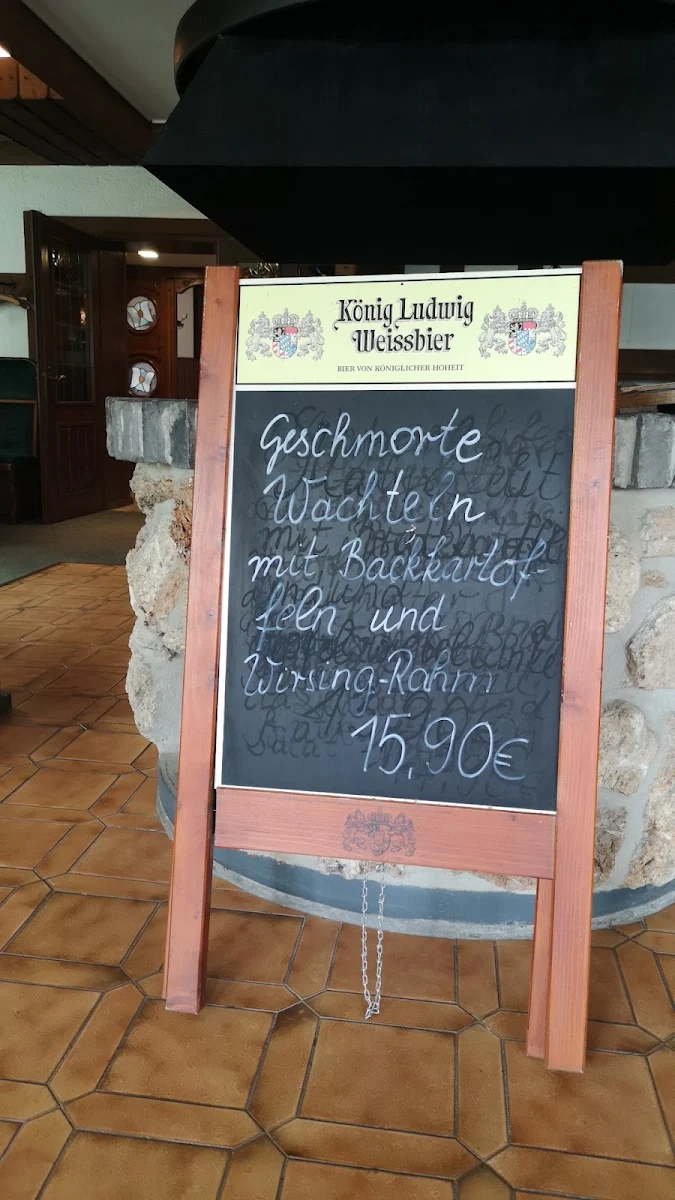 König Ludwig
Weissbier
BIER VON KÖNIGLICHER HOHEIT
Geschmorte
Wachteln
mit Backkartof-
feln und
Wirsing-Rahm
15,90€